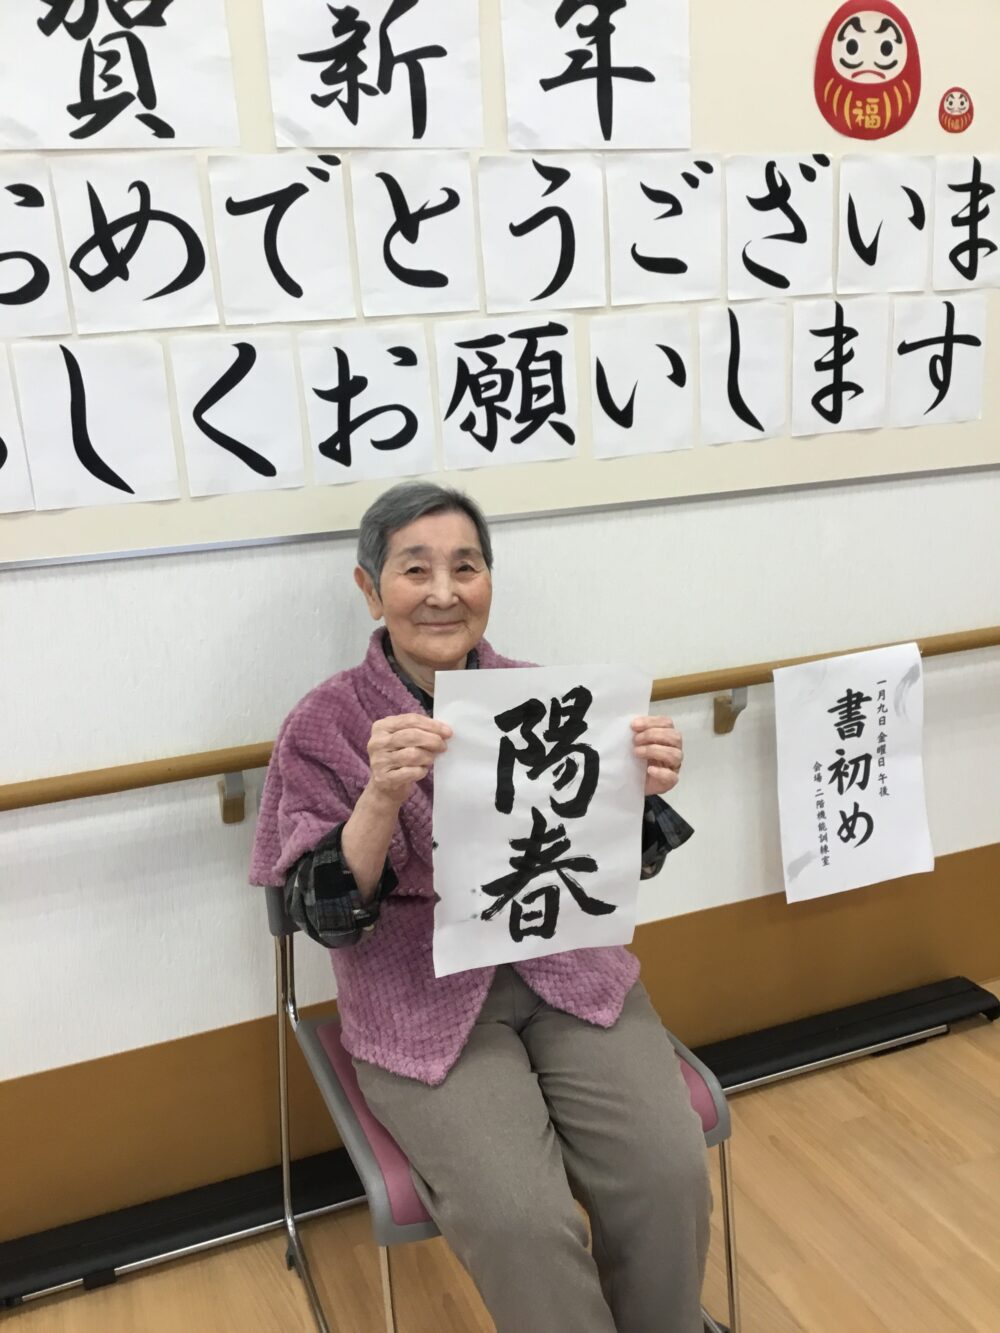 賀新年
福
福
おめでとうございま
しくお願いします
陽春
一月九日 金曜日 午後
書初め
会場 二階機能訓練室